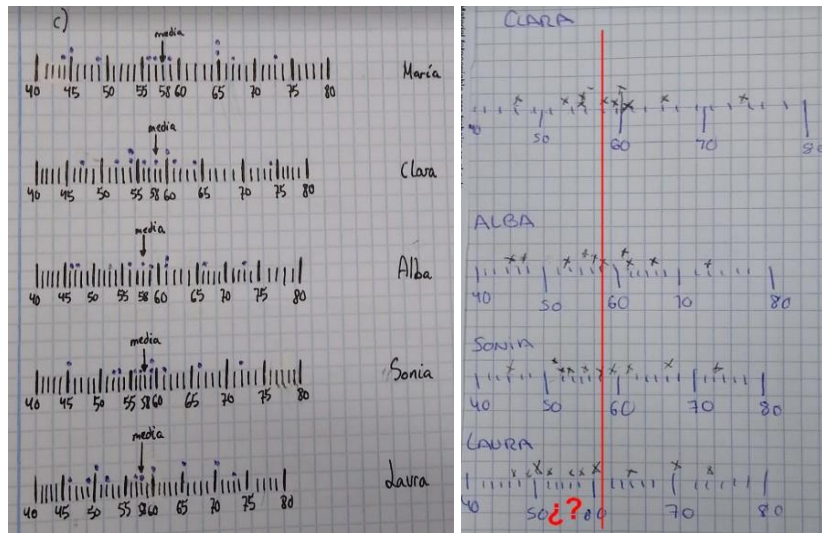 c)
media
40 45 50 55 58 60 65 70 75 80
María
media
40 45 50 55 58 60 65 70 75 80
Clara
media
40 45 50 55 58 60 65 70 75 80
Alba
media
40 45 50 55 58 60 65 70 75 80
Sonia
media
40 45 50 55 58 60 65 70 75 80
Laura
CLARA
50 60 70
ALBA
40 50 60 70 80
SONIA
40 50 60 70 80
LAURA
40 50 ¿? 60 70 80